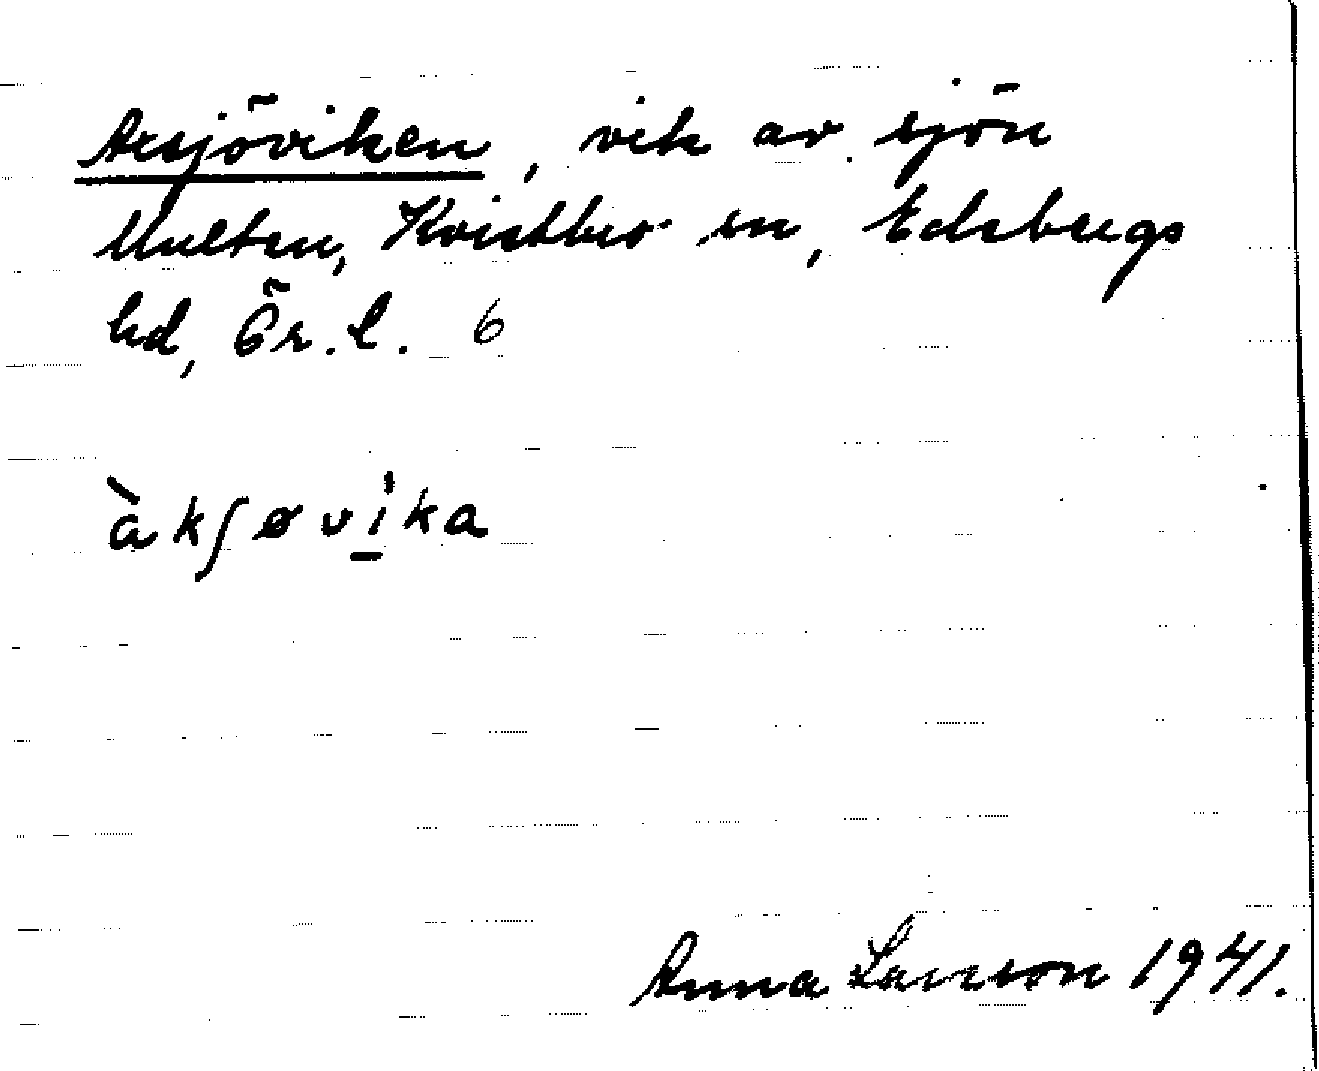 Axsjöviken, vik av sjön
Multen, Kvistbro sn, Edsbergs
hd, Ör. l. 6
àkʃøvi̱ka
Anna Larsson 1941.